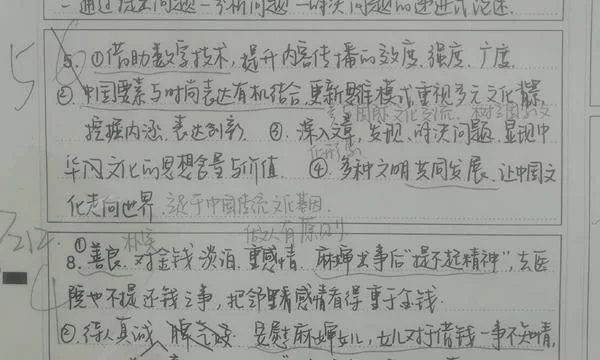 一通过提出问题一分析问题一解决问题的递进式论述.
5
5. ①借助数字技术,提升内容传播的效度、强度、广度.
②.中国要素与时尚表达有机结合,更新思维模式,重视多元文化背景,
挖掘内涵,表达创新. ③.深入文章,发现、解决问题.显现中
华文化的思想含量与价值. ④.多种文明共同发展.让中国文
化走向世界.立足于中国传统文化基因.
朴实 做人有原则
8.①善良.对金钱淡泊.重感情.麻婶出事后“提不起精神”,去医
院也不提还钱之事,把邻里看感情看得重于金钱.
②.待人真诚 脾气好.安慰麻婶女儿,女儿对于借钱一事不知情,